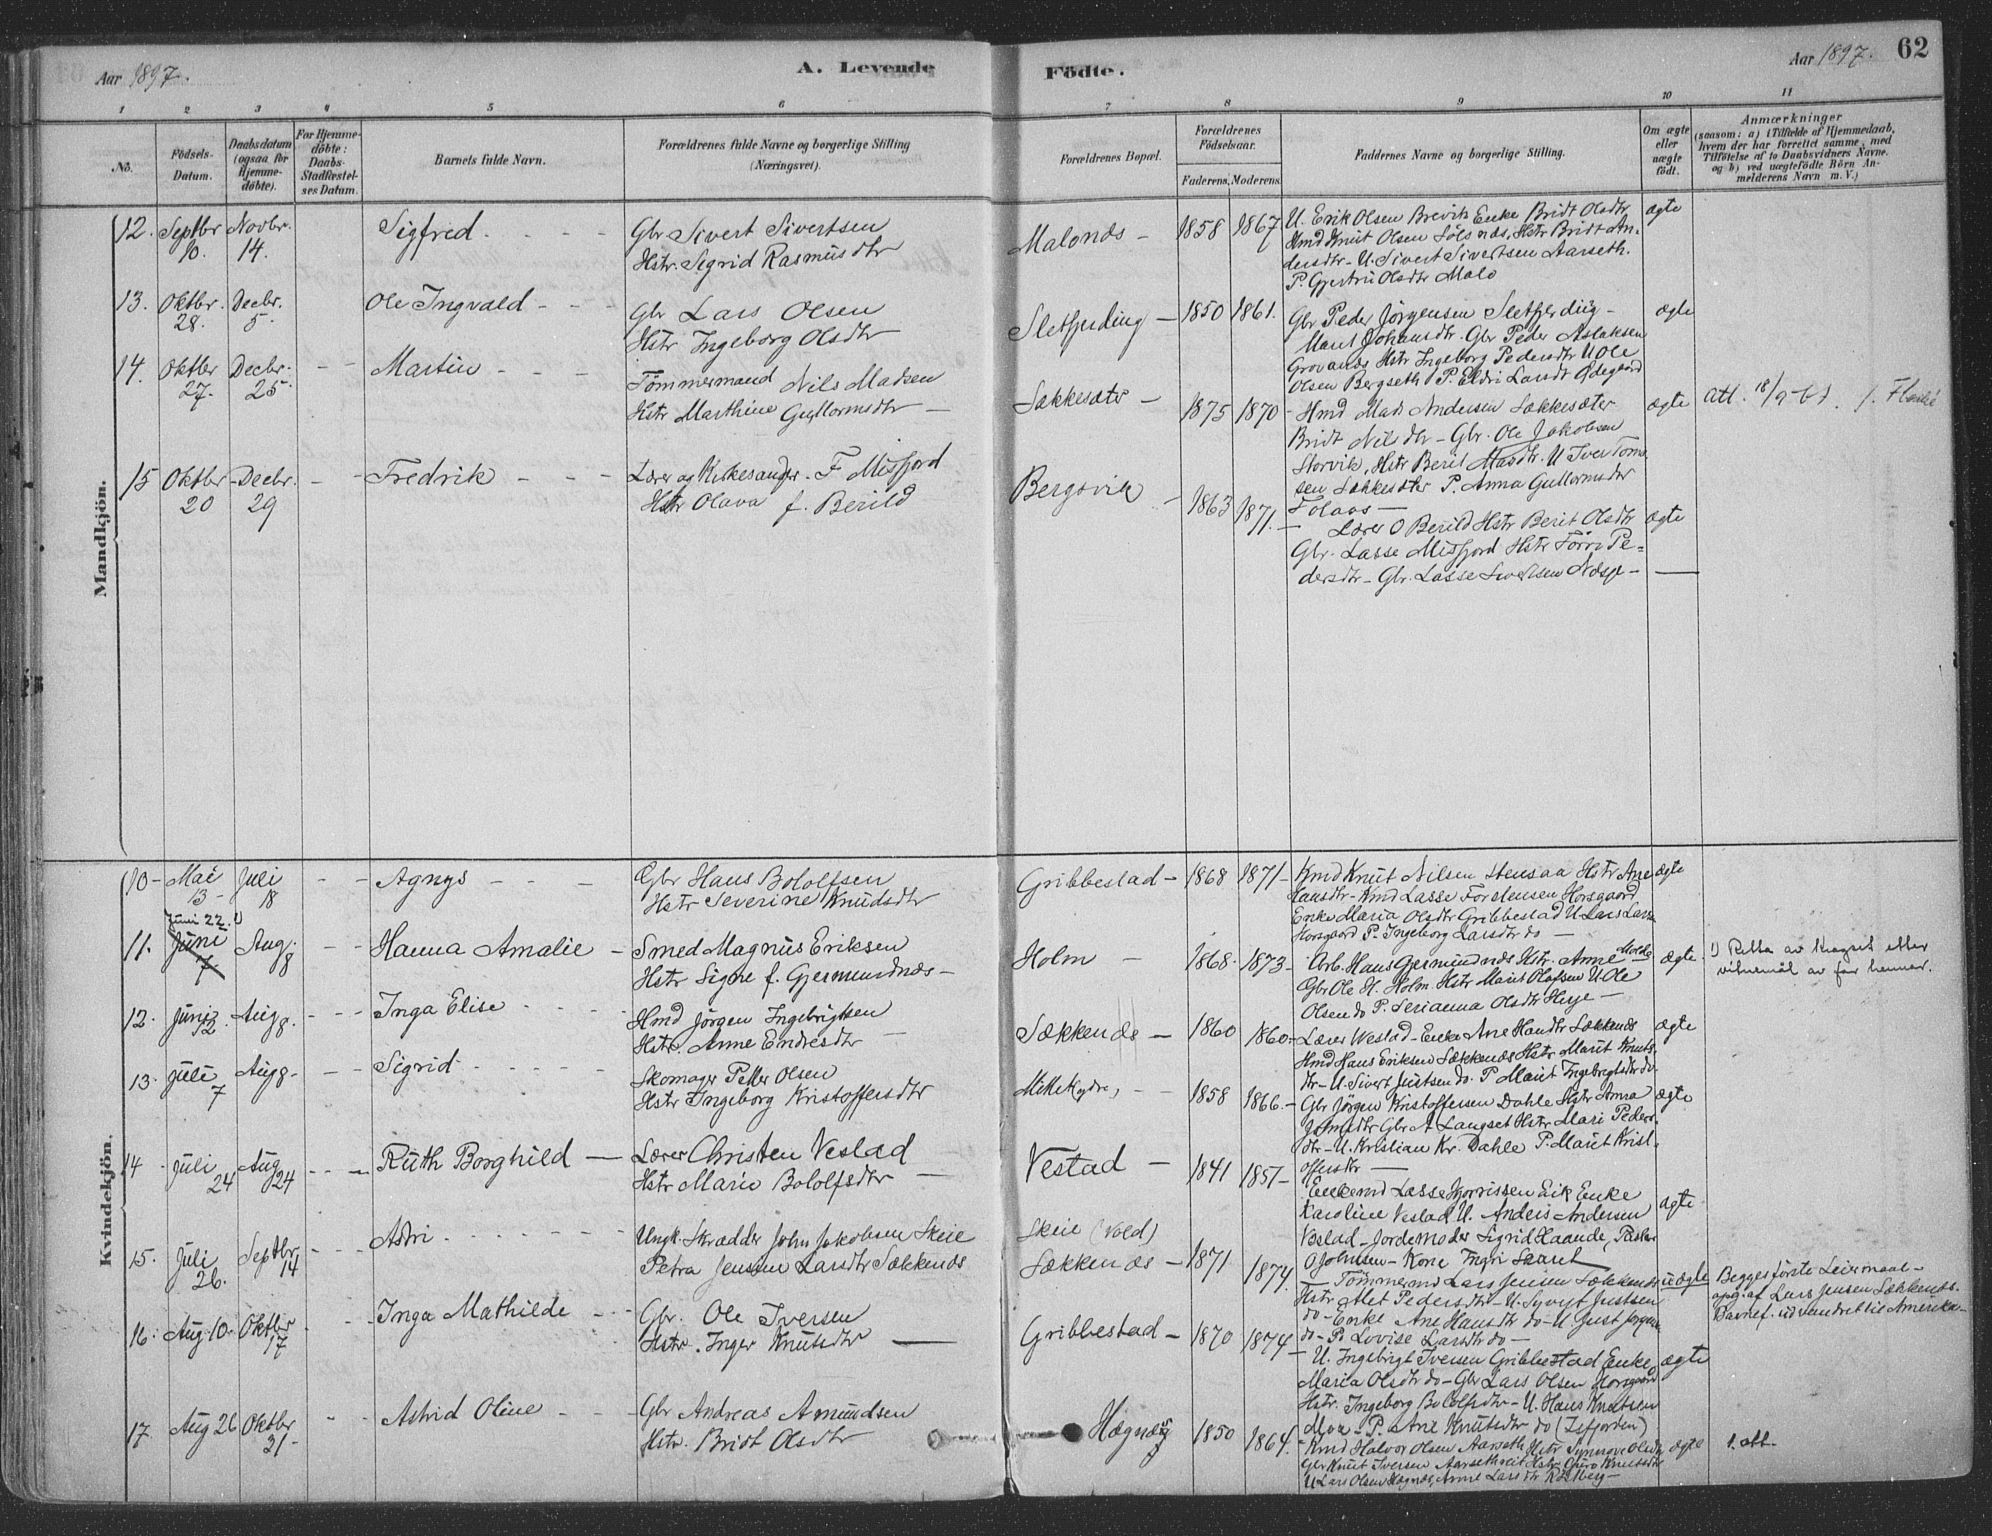 Aar 1897.
A. Levende Födte.
Aar 1897.
62
1 2 3 4 5 6 7 8 9 10 11
No.
Födsels-Datum.
Daabsdatum (ogsaa for Hjemmedöbte).
For Hjemmedöbte: Daabs-Stadfæstelses Datum.
Barnets fulde Navn.
Forældrenes fulde Navne og borgerlige Stilling (Næringsvei).
Forældrenes Bopæl.
Forældrenes Födselsaar.
Faderens. Moderens.
Faddernes Navne og borgerlige Stilling.
Om ægte eller uægte födt.
Anmærkninger
(saasom: a) i Tilfælde af Hjemmedaab, hvem der har forrettet samme, med Tilföielse af to Daabsvidners Navne. og b) ved uægtefödte Börn Anmelderens Navn m. V.)
Mandkjön.
12. Septbr 10. Novbr. 14. Sigfred
Gbr Sivert Sivertsen
Hstr. Sigrid Rasmusdtr
Malonæs 1858 1867
U. Erik Olsen Brevik Enke Bridt Olsdtr
Hmd Knut Olsen Sölsnæs, Hstr Bridt An-
dersdtr - U. Sivert Sivertsen Aarseth.
P. Gjertru Olsdtr Malo
ægte
13. Oktbr. 28. Decbr. 5. Ole Ingvald
Gbr Lars Olsen
Hstr Ingeborg Olsdtr
Sletfjerding 1850 1861.
Gbr Peder Jörgensen Sletfjerding -
Marit Johansdtr. Gbr Peder Aslaksen
Grovanæs Hstr Ingeborg Pedersdtr U Ole
Olsen Bergseth P. Eldri Larsdt Ödegaard
ægte
14. Oktbr 27. Decbr. 25 Martin
Tömmermand Nils Madsen
Hstr Marthine Gullormsdtr
Sækkesæter 1875 1870
Hmd Mads Andersen Sækkesæter
Bridt Nilsdtr - Gbr. Ole Jakobsen
Storvik, Hstr Berit Madsdtr. U Iver Tom-
sen Sækkesæter P. Anna Gullormsdtr
Folaas
ægte
att. 18/9
15 Oktbr 20 Decbr. 29 Fredrik
Lærer og Kirkesanger. F Misfjord
Hstr Olava f. Berild
Bergsvik 1863 1871.
Lærer O Berild Hstr Berit Olsdtr
Gbr. Lasse Misfjord Hstr
dersdtr - Gbr. Lasse Sivertsen
ægte
Kvindekjön.
10 Mai 13 Juli 18 Agnys
Gbr Hans Bololfsen
Hstr Severine Knudsdtr
Gribbestad 1868 1871
Kmd Knut Nilsen Stensaa Hstr Ane
Hansdtr - Kmd Lasse Torstensen Horsgaard
Enke Maria Olsdtr Gribbestad U Lars Lars
Horsgaard P. Ingeborg Larsdtr do
ægte
11. Juni 22. 1) Juni 7 Aug. 8 Hanna Amalie
Smed Magnus Eriksen
Hstr Signe f. Gjermundnæs
Holm 1868 1873
Arb. Hans Gjermundnæs Hstr. Anne Molde
Gbr Ole H. Holm Hstr Marit Olafsen U Ole
Olsen do P. Serianna Olsdtr Heye
ægte
1) Retta av kragnt etter
vitnemål av far hennar.
12. Juni 12. Aug 8. Inga Elise
Hmd Jörgen Ingebrigtsen
Hstr. Anne Endresdtr
Sækkenæs 1860 1860
Lærer Westad - Enke Ane Hansdtr Sækkenæs
Hmd Hans Eriksen Sækkenæs Hstr Marit Knuts-
dtr - U. Sivert Justsen do. P Marit Ingebrigtsdtr do
ægte
13. Juli 7 Aug 8. Sigrid
Skomager Petter Olsen
Hstr Ingeborg Kristoffersdtr
1858 1866.
Gbr Jörgen Kristoffersen Dahle Hstr Anna
Gbr A Langset Hstr Mari Peders
dtr - U. Kristian Kr. Dahle P. Marit Krist-
offersdtr
ægte
14 Juli 24 Aug 24 Ruth Borghild
Lærer Christen Vestad
Hstr Marie Bololfsdtr
Vestad 1841 1857
Enkemd Lasse Eik Enke
Karoline Vestad U. Anders Andersen
Vestad - Jordemoder Sigrid Haande,
O Johnsen - Kone Ingri
ægte
15. Juli 26. Septbr 14 Astri
Ungk. Skrædder John Jakobsen Skeie
Petra Jensine Larsdtr Sækkenæs
Skeie (Vold)
Sækkenæs 1871 1874.
Tömmermd Lars Jensen Sækkenæs
Hstr Alet Pedersdtr - U. Syvert Justsen
do - Enke Ane Hansdtr do - U. Just Jörgens
do - P. Lovise Larsdtr do
uægte
Begges förste Leiermaal -
opg. af Lars Jensen Sækkenæs.
Barnef. udvandret til Amerika.
16. Aug 10. Oktbr 17 Inga Mathilde
Gbr. Ole Iversen
Hstr. Inger Knutsdtr
Gribbestad 1870 1874.
U. Ingebrigt Iversen Gribbestad Enke
Maria Olsdtr do - Gbr Lars Olsen Horsgaard
Hstr. Ingeborg Bololfsdtr - U. Hans Knutsen
Moa - P. Ane Knutsdtr do (Isfjorden)
ægte
17. Aug 26 Oktbr 31 Astrid Oline
Gbr Andreas Amundsen
Hstr. Bridt Olsdtr
Hægnæs 1850 1864.
Kmd Halvor Olsen Aarseth Hstr Synnöve Olsdtr
Gbr Knut Iversen Aarsethreit Hstr Guro Knutsdtr
U Lars Olsen Hægnæs, Anne Larsdtr Rödberg
ægte
1. att.